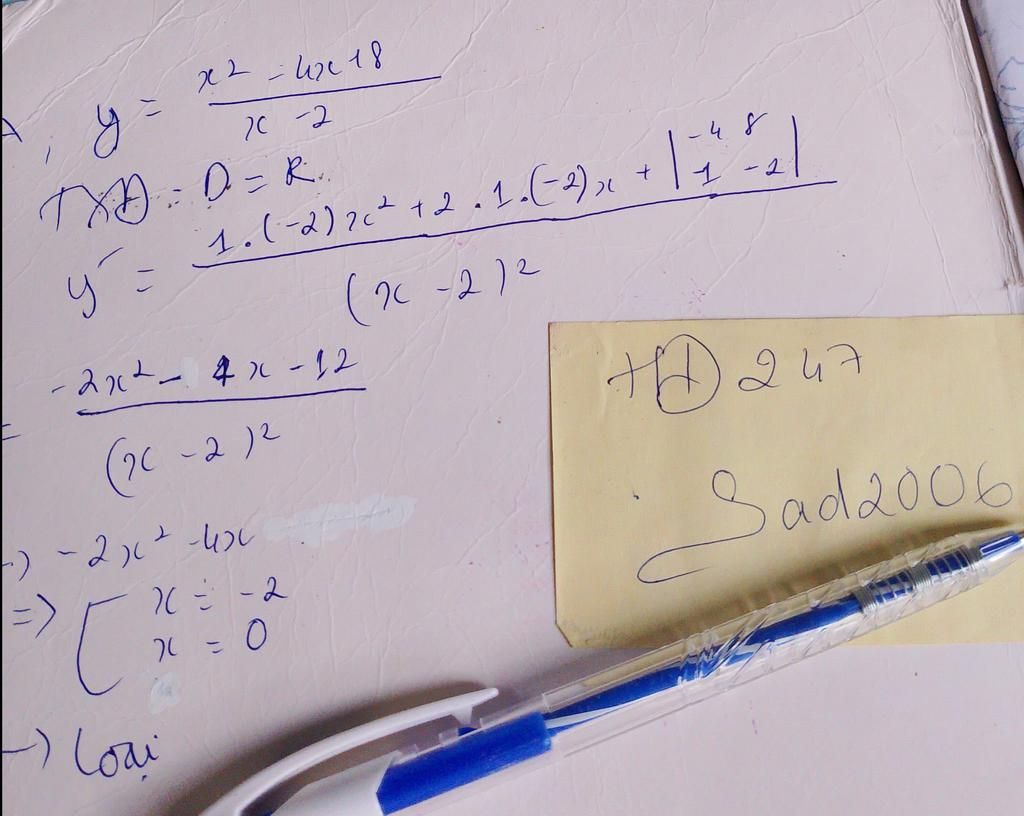 y = x² - 4x + 8 / x - 2
TXĐ : D = R
y' = 1.(-2)x² + 2.1.(-2)x + |-4 8 / 1 -2| / (x - 2)²
= -2x² - 4x - 12 / (x - 2)²
-> -2x² - 4x
=> [ x = -2
x = 0
-> Loại
+Đ 247
Sad2006